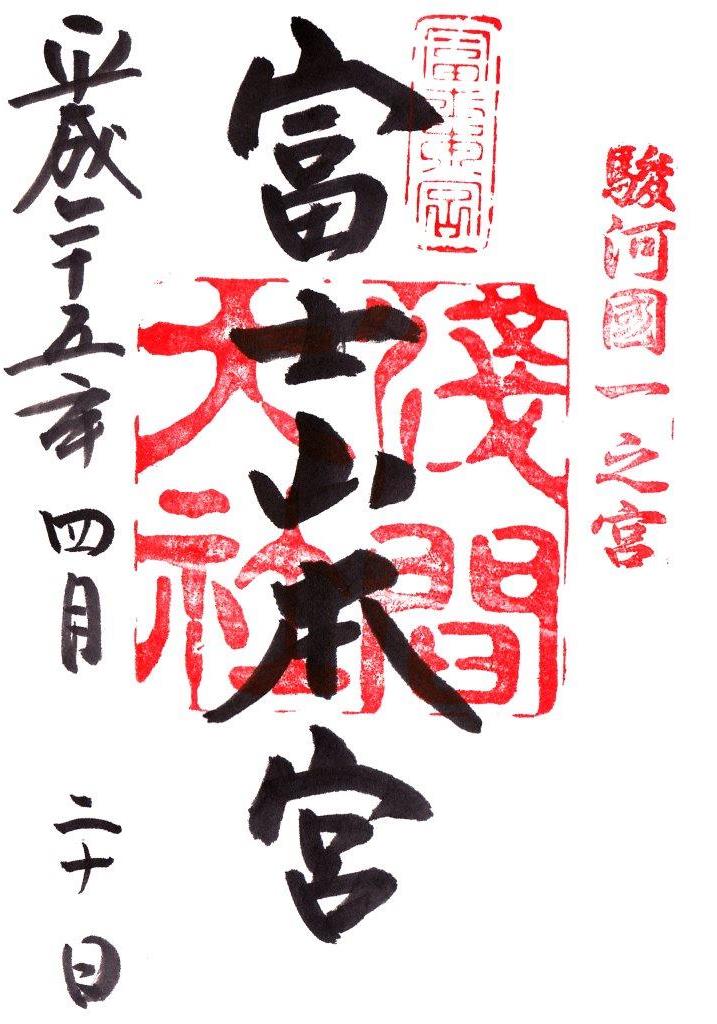 駿河國一之宮
富士山本宮
淺間大社
富士山本宮
平成二十五年 四月 二十日